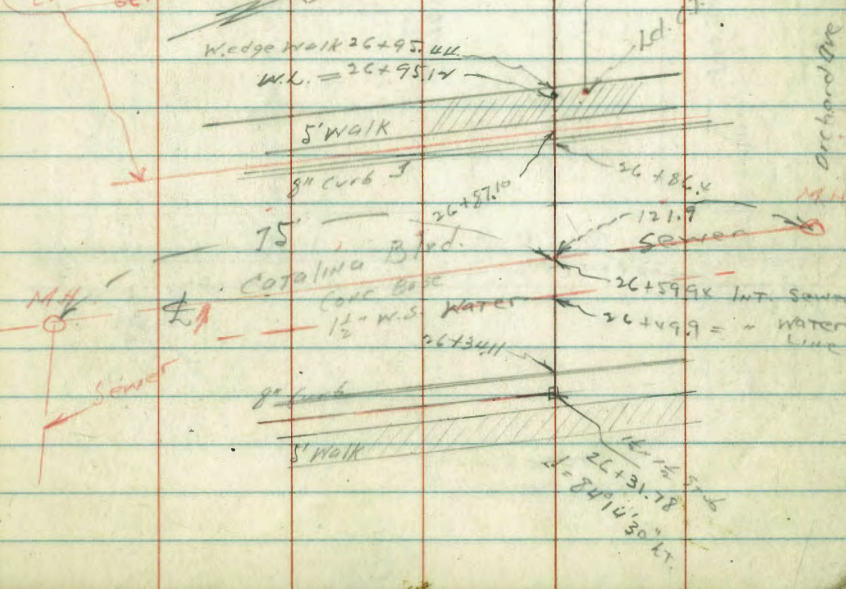 W. edge Walk 26+95.44
W.L. = 26+95.12
Ld.
Orchard Ave
5' Walk
8" Curb
26+87.10
26+86.4
121.9
M.H.
Sewer
75
Catalina Blvd.
Conc Base
1½" W.S. Water
M.H.
℄
26+59.94 Int. Sewer
26+49.9 = " Water Line
26+34.11
Sewer
8" Curb
5' Walk
26+31.78
84°14'30" Rt.